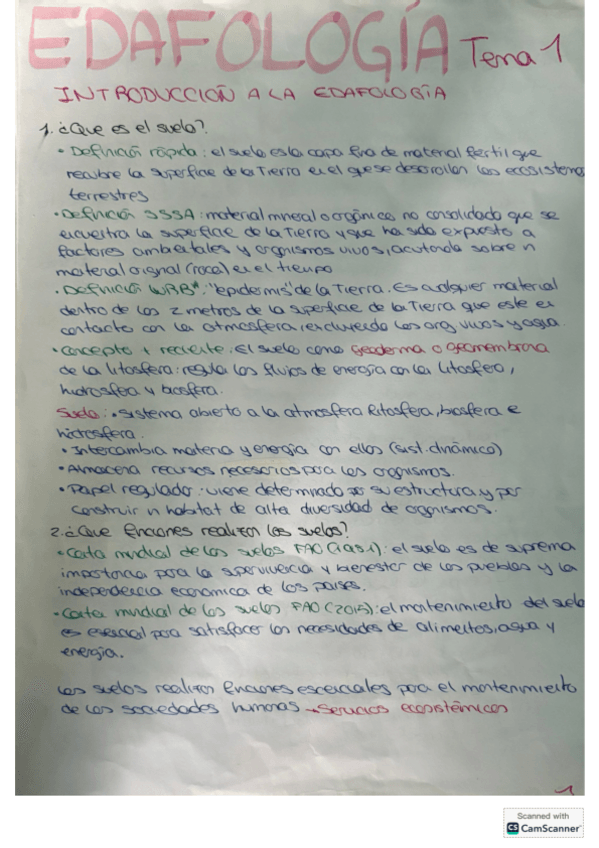 EDAFOLOGÍA Tema 1
INTRODUCCIÓN A LA EDAFOLOGÍA
1. ¿Que es el suelo?
• Definición rápida: el suelo es la capa fina de material fértil que
recubre la superficie de la Tierra en el que se desarrollan los ecosistemas
terrestres
• Definición SSSA: material mineral o orgánico no consolidado que se
encuentra la superficie de la Tierra y que ha sido expuesto a
factores ambientales y organismos vivos, actuando sobre un
material original (roca) en el tiempo
• Definición WRB*: "epidemis" de la Tierra. Es cualquier material
dentro de los 2 metros de la superficie de la Tierra que este en
contacto con la atmosfera, excluyendo los org vivos y agua.
• Concepto + reciente: El suelo como geoderma o geomembrana
de la litosfera: regula los flujos de energía con la litosfera,
hidrosfea y biosfera.
Suelo: • Sistema abierto a la atmosfera litosfera, biosfera e
hidrosfera.
• Intercambia materia y energía con ellos (sist. dinámico)
• Almacena recursos necesarios para los organismos.
• Papel regulador: viene determinado xo su estructura y por
construir un habitat de alta diversidad de organismos.
2. ¿Que funciones realizan los suelos?
• Carta mundial de los suelos FAO (1981): el suelo es de suprema
importancia para la supervivencia y bienestar de los pueblos y la
independencia economica de los paises.
• Carta mundial de los suelos FAO (2015): el mantenimiento del suelo
es esencial para satisfacer las necesidades de alimentos, agua y
energia.
Los suelos realizan funciones esenciales para el mantenimiento
de las sociedades humanas → Servicios ecosistémicos
1
Scanned with
CS CamScanner